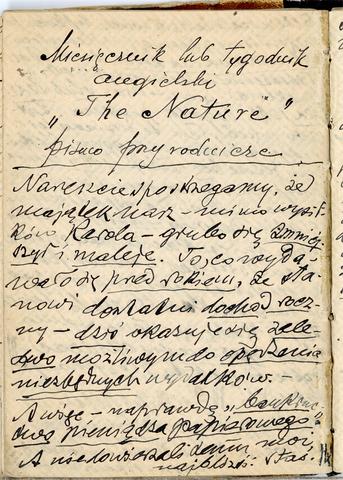 Miesięcznik lub tygodnik
angielski
"The Nature"
pismo przyrodnicze
Nareszcie spostrzegamy, że
majątek nasz – mimo wysił-
ków Karola – grubo się zmniej-
szył i maleje. To, co wyda-
wało się przed rokiem, że sta-
nowi dostatni dochód rocz-
ny – dziś okazuje się zale-
dwo możliwym do opędzenia
niezbędnych wydatków. –
A więc – naprawdę
pieniądza papierowego
A nie dowierzali temu moi
najbliżsi